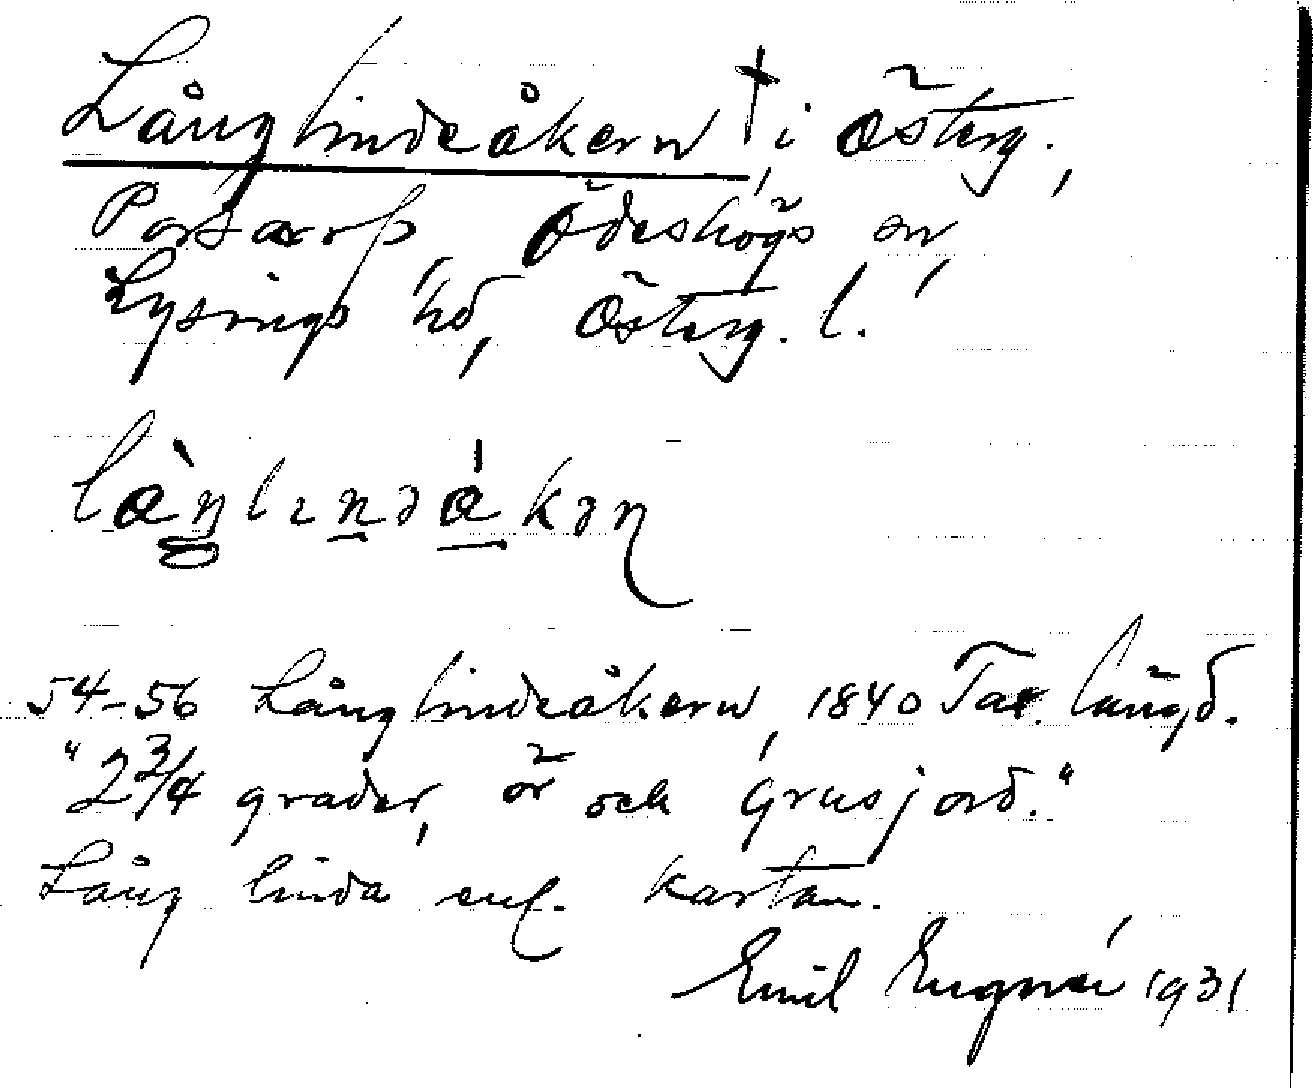 Långlindeåkern † i Österg.,
Porsarp, Ödeshögs sn,
Lysings hd, Österg. l.
54-56 Långlindeåkern, 1840 Tax. längd.
"2 3/4 grader, ör och grusjord."
Lång linda enl. kartan.
Emil 1931